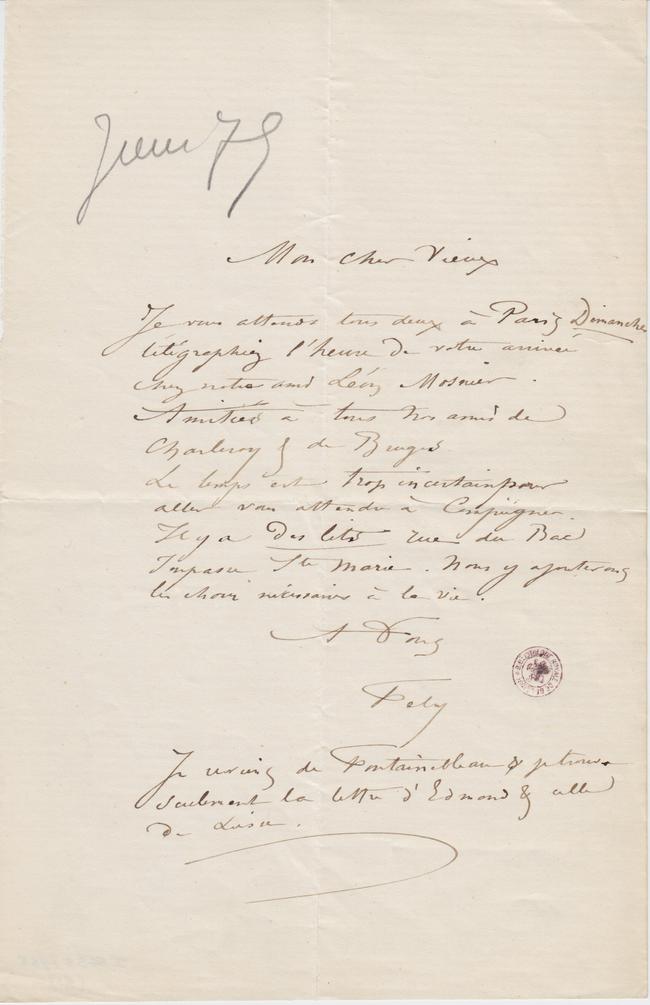 Juin 79
Mon cher Vieux
Je vous attends tous deux à Paris Dimanche
télégraphiez l'heure de votre arrivée
chez notre ami Léon Mosnier.
Amitiés à tous nos amis de
Charleroy & de Bruges.
Le temps est trop incertain pour
aller vous attendre à Compiègne.
Il y a des lits rue du Bac
Impasse Ste Marie. Nous y ajouterons
les choses nécessaires à la vie.
A Vous
Fély
Je reviens de Fontainebleau & je trouve
seulement la lettre d'Edmond & celle
de